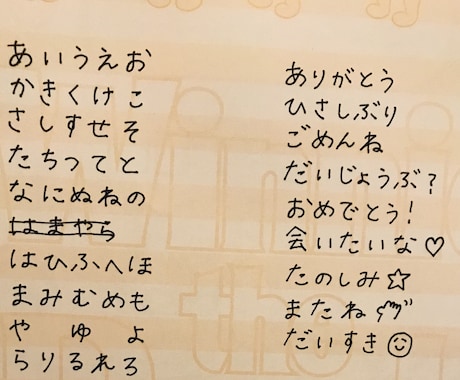 あいうえお
かきくけこ
さしすせそ
たちつてと
なにぬねの
はまやら
はひふへほ
まみむめも
やゆよ
らりるれろ
ありがとう
ひさしぶり
ごめんね
だいじょうぶ?
おめでとう!
会いたいな♡
たのしみ☆
またね
だいすき☺